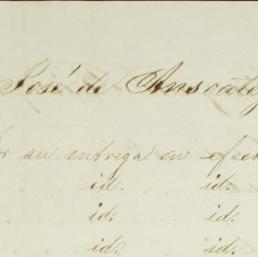 José de Ansoateg
r su entrega en efec
id. id.
id. id.
id. id.